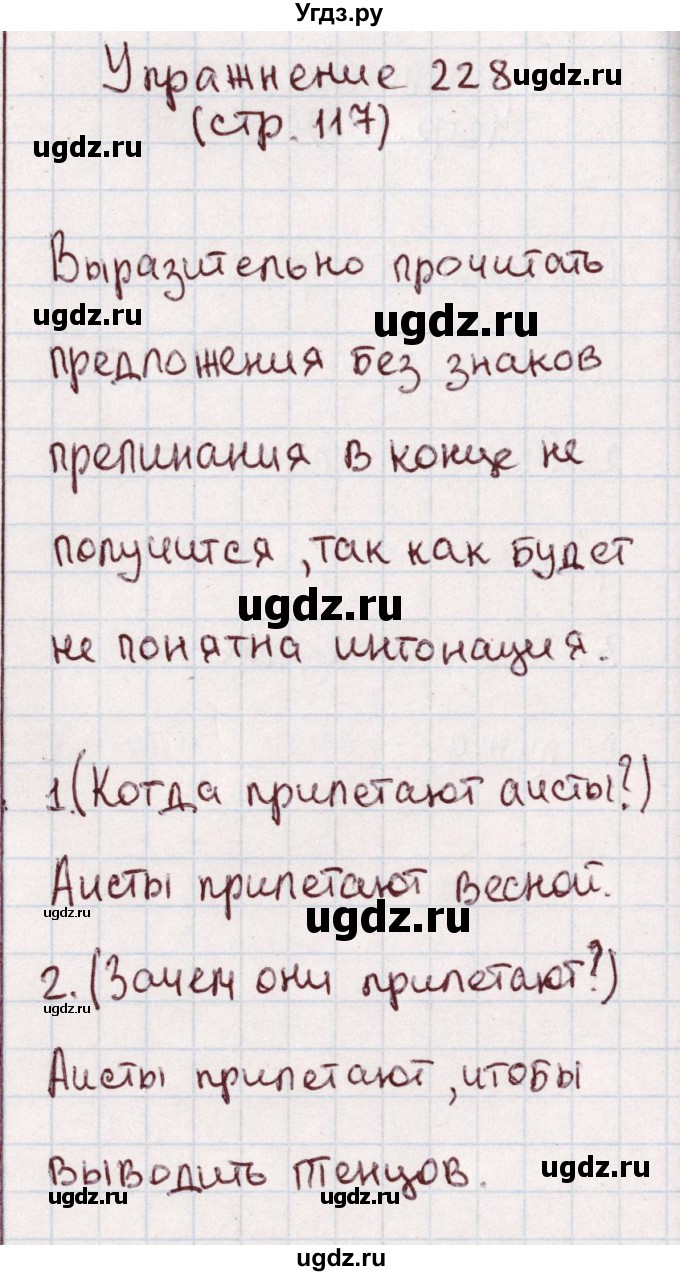 Угдз.ру
Упражнение 228
ugdz.ru
(стр. 117)
ugdz.ru
Выразительно прочитать
ugdz.ru
ugdz.ru
предложения без знаков
препинания в конце не
получится, так как будет
ugdz.ru
не понятна интонация.
1.(Когда прилетают аисты?)
Аисты прилетают весной.
ugdz.ru
ugdz.ru
2.(Зачем они прилетают?)
ugdz.ru
Аисты прилетают, чтобы
выводить птенцов.
ugdz.ru
ugdz.ru
ugdz.ru
ugdz.ru